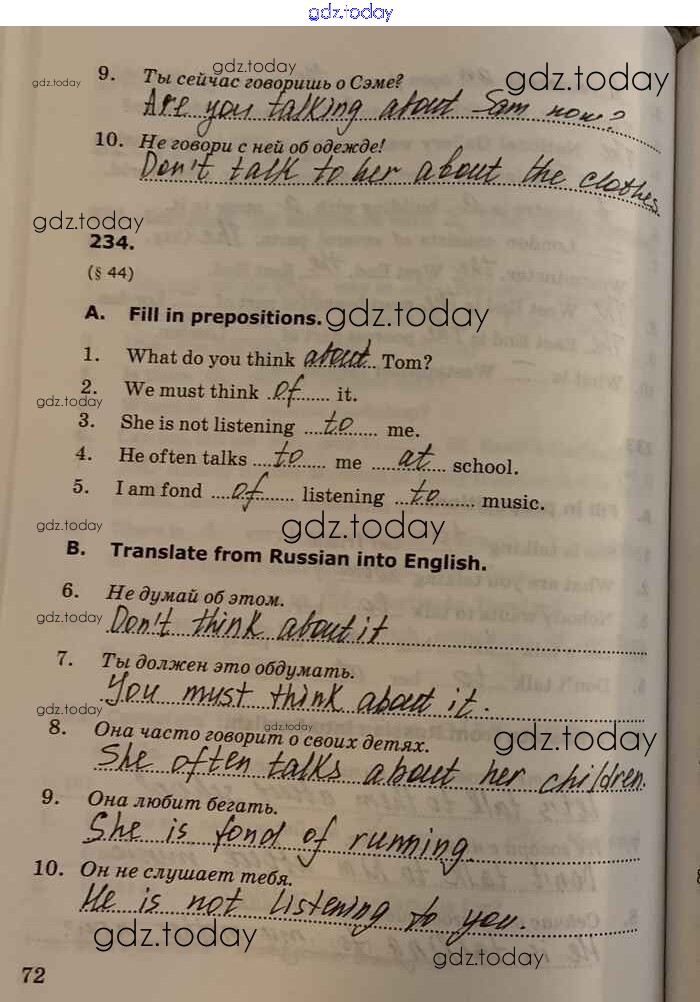 gdz.today
9. Ты сейчас говоришь о Сэме?
gdz.today
gdz.today
gdz.today
Are you talking about Sam now?
10. Не говори с ней об одежде!
Don't talk to her about the clothes.
gdz.today
234.
(§ 44)
A. Fill in prepositions.
gdz.today
1. What do you think about Tom?
2. We must think of it.
gdz.today
3. She is not listening to me.
4. He often talks to me at school.
5. I am fond of listening to music.
gdz.today
gdz.today
B. Translate from Russian into English.
6. Не думай об этом.
gdz.today
Don't think about it
7. Ты должен это обдумать.
You must think about it.
gdz.today
8. Она часто говорит о своих детях.
gdz.today
gdz.today
She often talks about her children.
9. Она любит бегать.
She is fond of running.
10. Он не слушает тебя.
He is not listening to you.
gdz.today
gdz.today
72